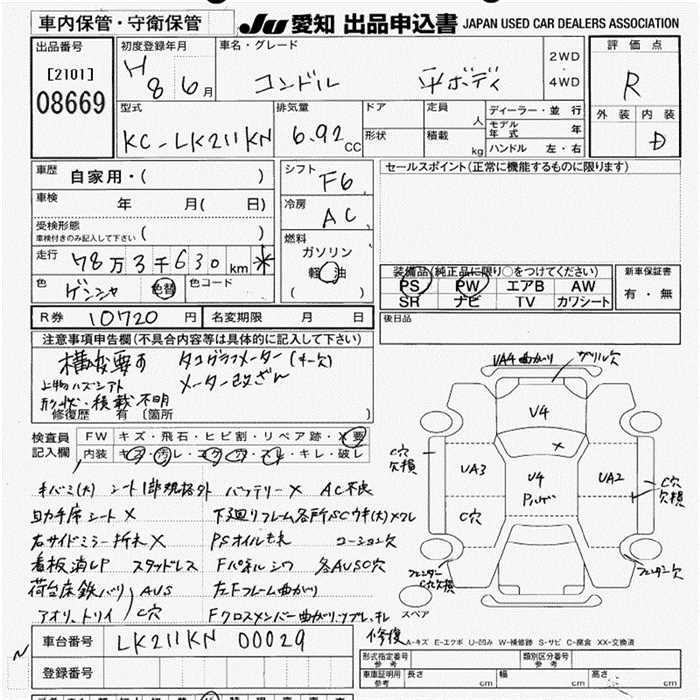 車内保管・守衛保管
JU 愛知 出品申込書 JAPAN USED CAR DEALERS ASSOCIATION
出品番号
[2101]
08669
初度登録年月
H 8 6月
車名・グレード
コンドル 平ボディ
2WD
・
4WD
評価点
R
外装 内装
D
型式
KC-LK211KN
排気量
6.92 CC
ドア
形状
定員 人
積載 kg
ディーラー・並行
モデル年式 年
ハンドル 左・右
車歴 自家用・( )
車検 年 月( 日)
受検形態
車検付きのみ記入して下さい ( )
走行 78万3千630 km *
色 ゲンシャ 色替 色コード
シフト F6
冷房 AC
燃料
ガソリン
軽油
( )
セールスポイント(正常に機能するものに限ります)
装備品(純正品に限り○をつけてください)
PS PW エアB AW
SR ナビ TV カワシート
新車保証書
有・無
R券 10720 円 名変期限 月 日
後日品
注意事項申告欄(不具合内容等は具体的に記入して下さい)
構変要す タコグラフメーター(キー欠)
上物ハズシアト メーター改ざん
形状・積載不明
修復歴 有 (箇所 )
検査員
記入欄
FW キズ・飛石・ヒビ割・リペア跡・X要
内装 キズ・汚レ・コゲ・穴・スレ・キレ・破レ
キバミ(大) シート1部規格外 バッテリーX AC不良
助力手席シートX 下廻りフレーム各所SCウキ(大)メクレ
右サイドミラー折未X PSオイルモれ コーション欠
看板消しP スタッドレス Fパネルシワ 各AUSC穴
荷台床鉄バリ AUS 左Fフレーム曲がり
アオリ、トリイ C穴 Fクロスメンバー曲がり、ツブレ、キレ
修復
VA4曲がり グリル欠
V4
X
UA3
V4
UA2
C穴
欠損
C穴
C穴
欠損
フェンダー
C穴欠損
フェンダー欠
スペア
A-キズ E-エクボ U-凹み W-補修跡 S-サビ C-腐食 XX-交換済
車台番号 LK211KN 00029
登録番号
N
型式指定番号
参考
類別区分番号
参考
車庫証明用
参考
長さ cm 幅 cm 高さ cm